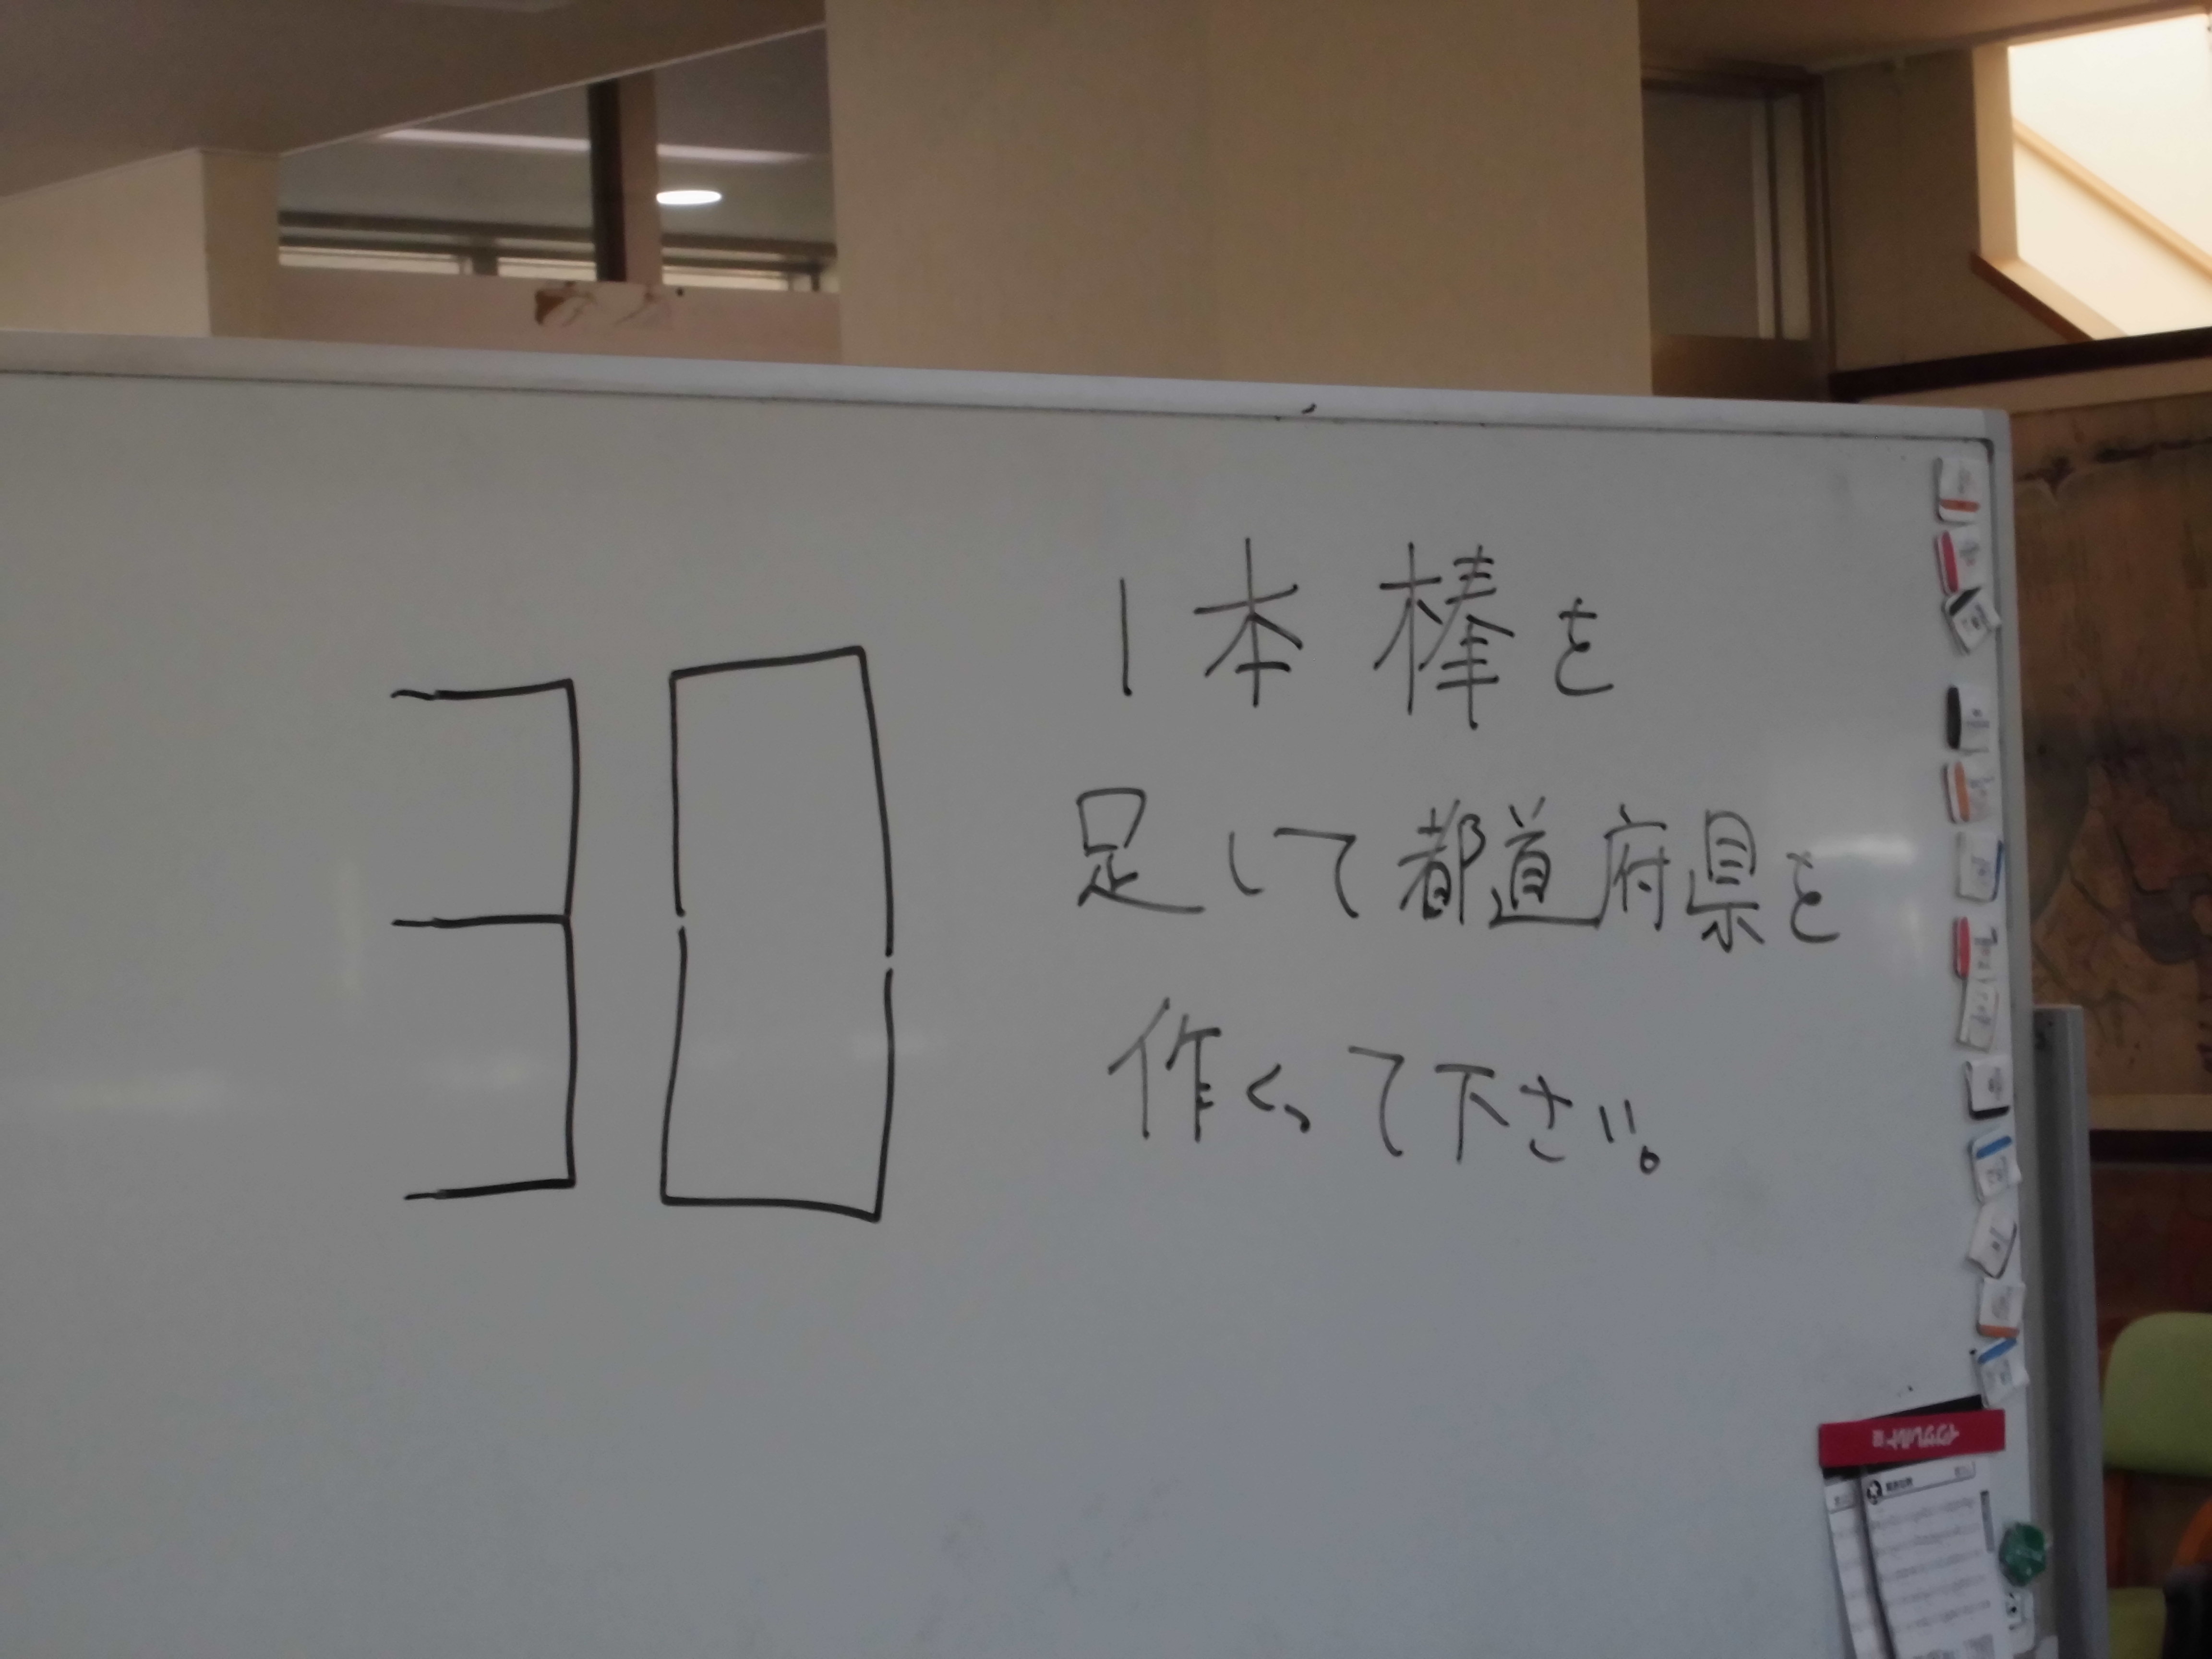 30
1本棒を
足して都道府県を
作くって下さい。